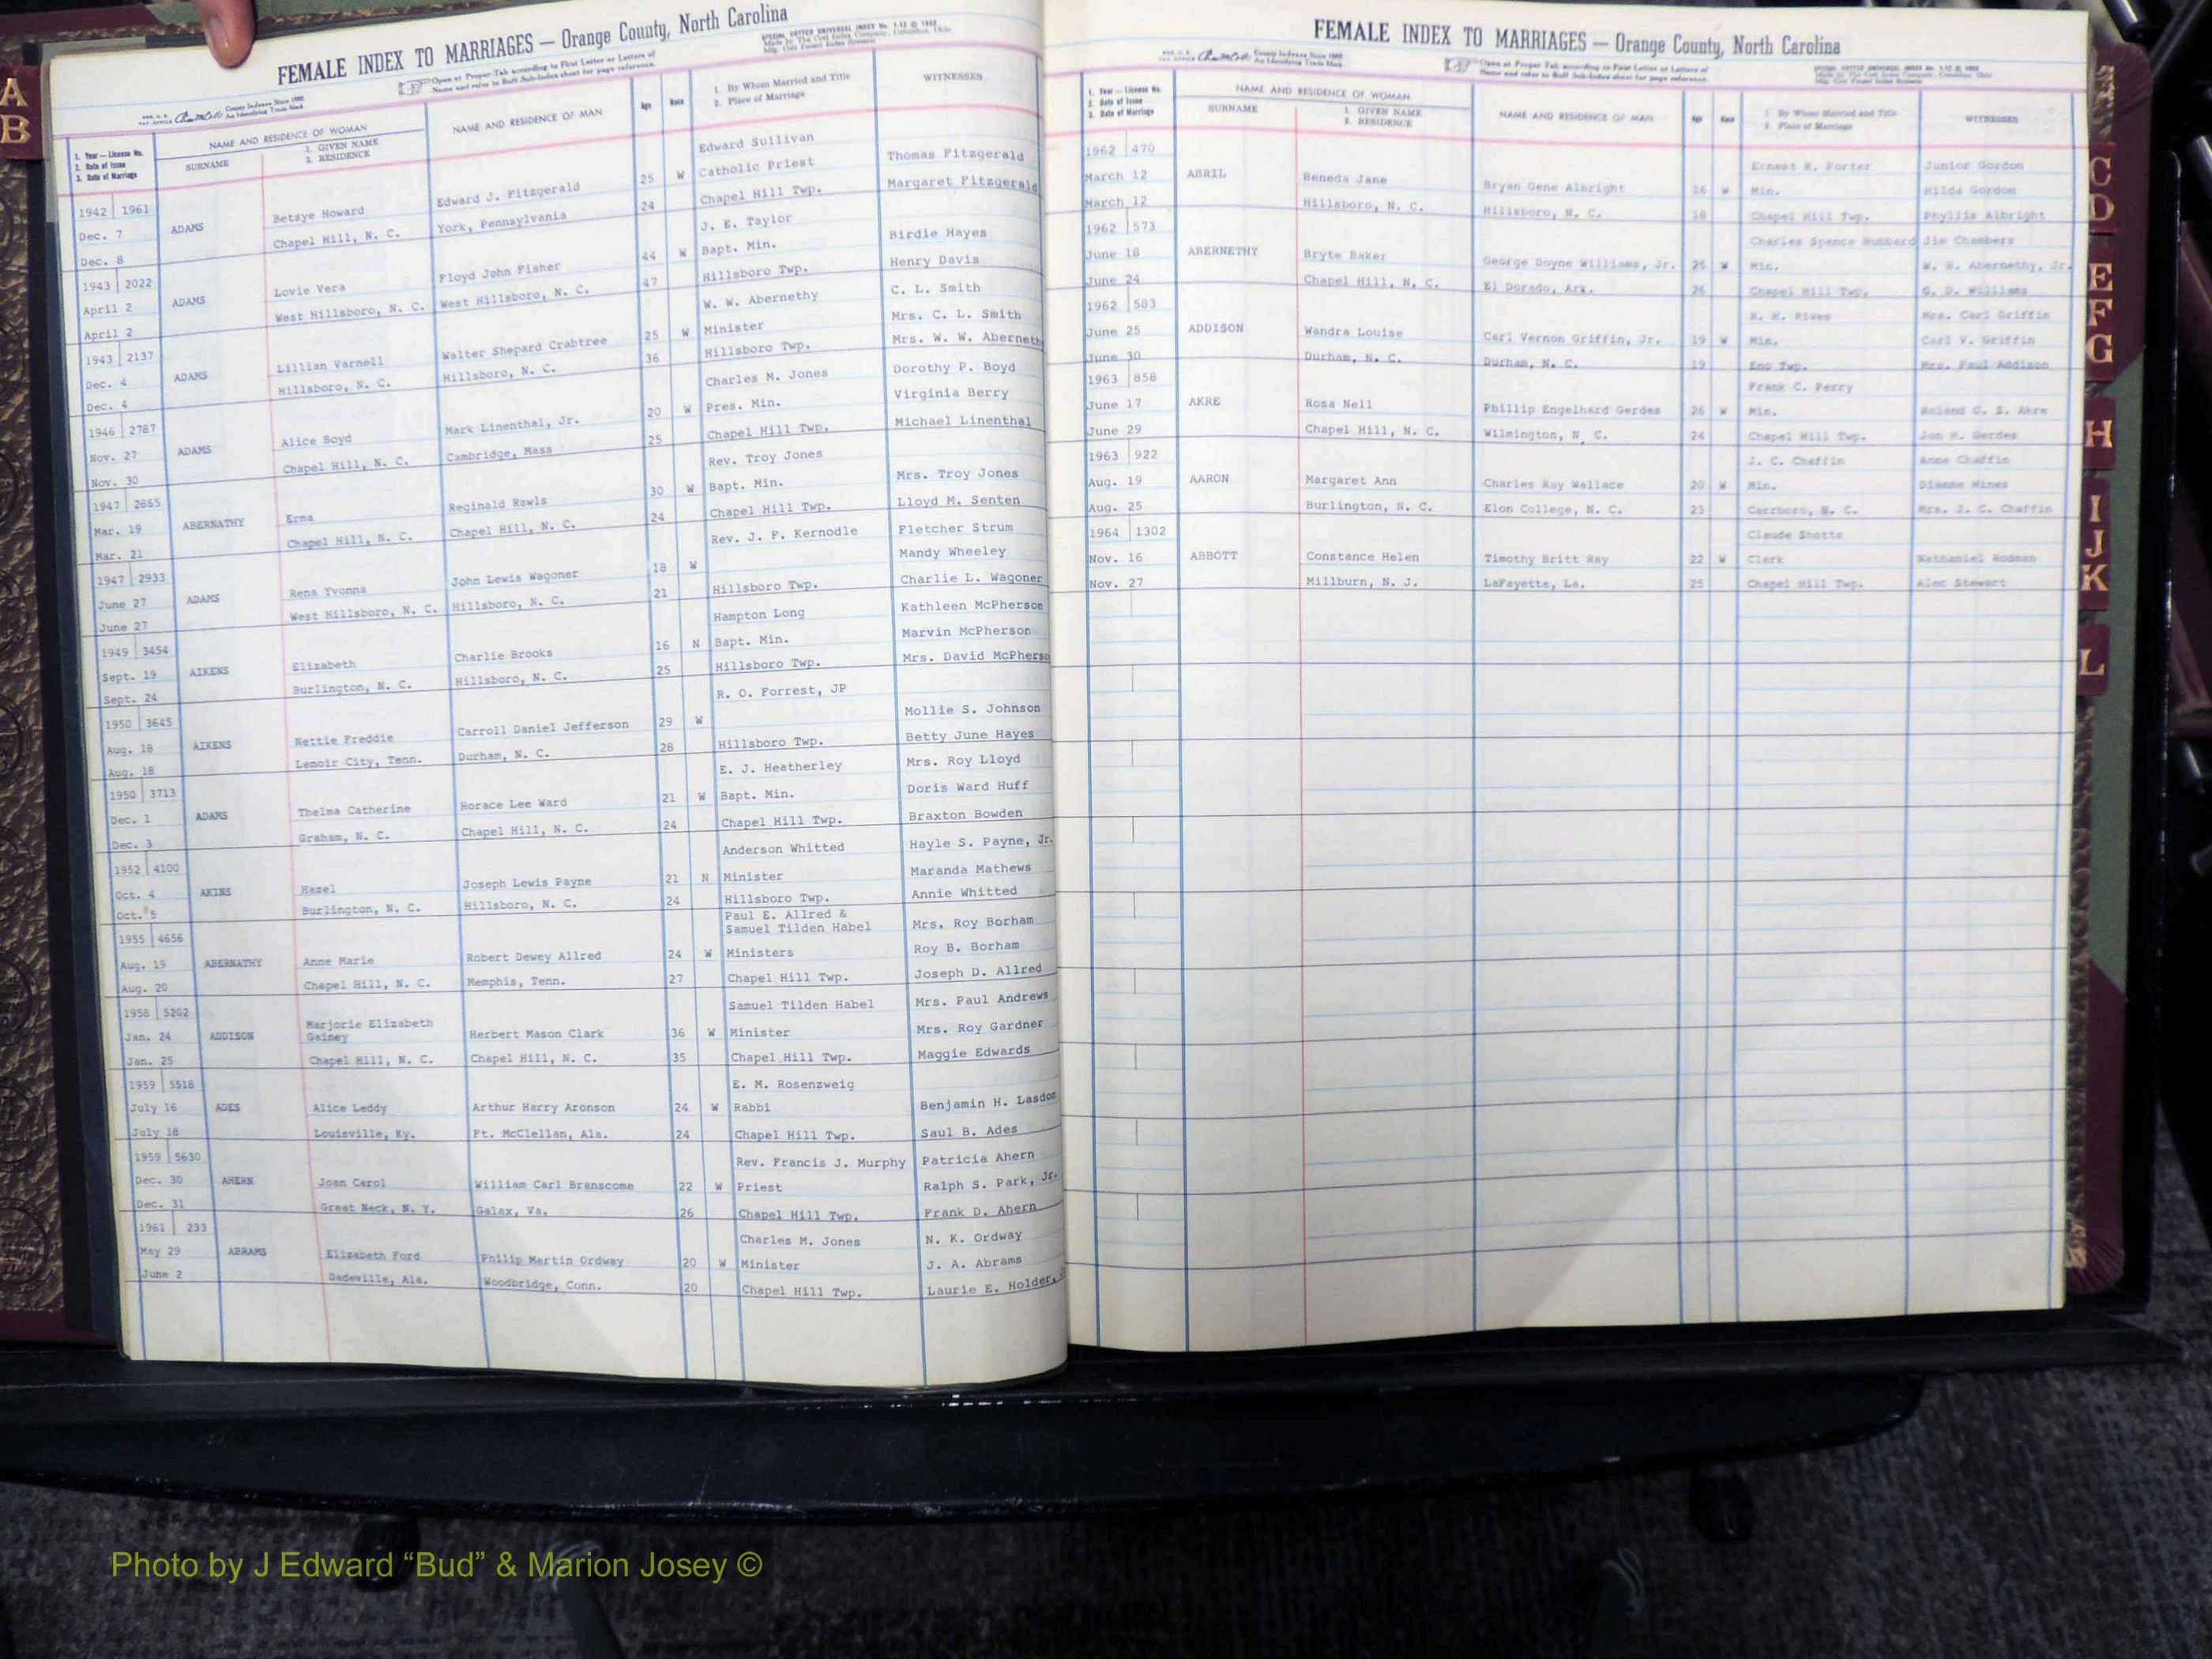 FEMALE INDEX TO MARRIAGES — Orange County, North Carolina
Open at Proper Tab according to First Letter or Letters of
Name and refer to Buff Sub-Index sheet for page reference.
1. Year — License No. 2. Date of Issue 3. Date of Marriage
NAME AND RESIDENCE OF WOMAN
SURNAME 1. GIVEN NAME 2. RESIDENCE
NAME AND RESIDENCE OF MAN
Age Race
1. By Whom Married and Title 2. Place of Marriage
WITNESSES
Edward Sullivan
1942 1961 Betsye Howard Edward J. Fitzgerald 25 W Catholic Priest Thomas Fitzgerald
Dec. 7 ADAMS Chapel Hill, N. C. York, Pennsylvania 24 Chapel Hill Twp. Margaret Fitzgerald
Dec. 8 J. E. Taylor
1943 2022 Lovie Vera Floyd John Fisher 44 W Bapt. Min. Birdie Hayes
April 2 ADAMS West Hillsboro, N. C. West Hillsboro, N. C. 47 Hillsboro Twp. Henry Davis
April 2 W. W. Abernethy C. L. Smith
1943 2137 Lillian Varnell Walter Shepard Crabtree 25 W Minister Mrs. C. L. Smith
Dec. 4 ADAMS Hillsboro, N. C. Hillsboro, N. C. 36 Hillsboro Twp. Mrs. W. W. Aberneth
Dec. 4 Charles M. Jones Dorothy P. Boyd
1946 2787 Alice Boyd Mark Linenthal, Jr. 20 W Pres. Min. Virginia Berry
Nov. 27 ADAMS Chapel Hill, N. C. Cambridge, Mass 25 Chapel Hill Twp. Michael Linenthal
Nov. 30 Rev. Troy Jones
1947 2865 Erma Reginald Rawls 30 W Bapt. Min. Mrs. Troy Jones
Mar. 19 ABERNATHY Chapel Hill, N. C. Chapel Hill, N. C. 24 Chapel Hill Twp. Lloyd M. Senten
Mar. 21 Rev. J. F. Kernodle Fletcher Strum
1947 2933 Rena Yvonna John Lewis Wagoner 18 W Mandy Wheeley
June 27 ADAMS West Hillsboro, N. C. Hillsboro, N. C. 21 Hillsboro Twp. Charlie L. Wagoner
June 27 Hampton Long Kathleen McPherson
1949 3454 Elizabeth Charlie Brooks 16 N Bapt. Min. Marvin McPherson
Sept. 19 AIKENS Burlington, N. C. Hillsboro, N. C. 25 Hillsboro Twp. Mrs. David McPherso
Sept. 24 R. O. Forrest, JP
1950 3645 Nettie Freddie Carroll Daniel Jefferson 29 W Mollie S. Johnson
Aug. 18 AIKENS Lenoir City, Tenn. Durham, N. C. 28 Hillsboro Twp. Betty June Hayes
Aug. 18 E. J. Heatherley Mrs. Roy Lloyd
1950 3713 Thelma Catherine Horace Lee Ward 21 W Bapt. Min. Doris Ward Huff
Dec. 1 ADAMS Graham, N. C. Chapel Hill, N. C. 24 Chapel Hill Twp. Braxton Bowden
Dec. 3 Anderson Whitted Hayle S. Payne, Jr.
1952 4100 Hazel Joseph Lewis Payne 21 N Minister Maranda Mathews
Oct. 4 AKINS Burlington, N. C. Hillsboro, N. C. 24 Hillsboro Twp. Annie Whitted
Oct. 5 Paul E. Allred &
Samuel Tilden Habel Mrs. Roy Borham
1955 4656 Anne Marie Robert Dewey Allred 24 W Ministers Roy B. Borham
Aug. 19 ABERNATHY Chapel Hill, N. C. Memphis, Tenn. 27 Chapel Hill Twp. Joseph D. Allred
Aug. 20
1958 5202 Marjorie Elizabeth Samuel Tilden Habel Mrs. Paul Andrews
Jan. 24 ADDISON Gainey Herbert Mason Clark 36 W Minister Mrs. Roy Gardner
Jan. 25 Chapel Hill, N. C. Chapel Hill, N. C. 35 Chapel Hill Twp. Maggie Edwards
1959 5518 E. M. Rosenzweig
July 16 ADES Alice Leddy Arthur Harry Aronson 24 W Rabbi Benjamin H. Lasdon
July 18 Louisville, Ky. Ft. McClellan, Ala. 24 Chapel Hill Twp. Saul B. Ades
1959 5630 Rev. Francis J. Murphy Patricia Ahern
Dec. 30 AHERN Joan Carol William Carl Branscome 22 W Priest Ralph S. Park, Jr.
Dec. 31 Great Neck, N. Y. Galax, Va. 26 Chapel Hill Twp. Frank D. Ahern
1961 233 Charles M. Jones N. K. Ordway
May 29 ABRAMS Elizabeth Ford Philip Martin Ordway 20 W Minister J. A. Abrams
June 2 Dadeville, Ala. Woodbridge, Conn. 20 Chapel Hill Twp. Laurie E. Holder, J
FEMALE INDEX TO MARRIAGES — Orange County, North Carolina
Open at Proper Tab according to First Letter or Letters of
Name and refer to Buff Sub-Index sheet for page reference.
1. Year — License No. 2. Date of Issue 3. Date of Marriage
NAME AND RESIDENCE OF WOMAN
SURNAME 1. GIVEN NAME 2. RESIDENCE
NAME AND RESIDENCE OF MAN
Age Race
1. By Whom Married and Title 2. Place of Marriage
WITNESSES
1962 470 Ernest R. Porter Junior Gordon
March 12 ABRIL Beneda Jane Bryan Gene Albright 16 W Min. Hilda Gordon
March 12 Hillsboro, N. C. Hillsboro, N. C. 18 Chapel Hill Twp. Phyllis Albright
1962 573 Charles Spence Hubbard Jim Chambers
June 18 ABERNETHY Bryte Baker George Doyne Williams, Jr. 25 W Min. W. B. Abernethy, Jr.
June 24 Chapel Hill, N. C. El Dorado, Ark. 26 Chapel Hill Twp. G. D. Williams
1962 583 Mrs. Carl Griffin
June 25 ADDISON Wandra Louise Carl Vernon Griffin, Jr. 19 W Min. Carl V. Griffin
June 30 Durham, N. C. Durham, N. C. 19 Eno Twp. Mrs. Paul Addison
1963 858 Frank C. Perry
June 17 AKRE Rosa Nell Phillip Engelhard Gerdes 26 W Min. Roland O. S. Akre
June 29 Chapel Hill, N. C. Wilmington, N. C. 24 Chapel Hill Twp. Jon H. Gerdes
1963 922 J. C. Chaffin Anne Chaffin
Aug. 19 AARON Margaret Ann Charles Ray Wallace 20 W Min. Dianne Hines
Aug. 25 Burlington, N. C. Elon College, N. C. 23 Carrboro, N. C. Mrs. J. C. Chaffin
1964 1302 Claude Shotts
Nov. 16 ABBOTT Constance Helen Timothy Britt Ray 22 W Clerk Nathaniel Rodman
Nov. 27 Millburn, N. J. LaFayette, La. 25 Chapel Hill Twp. Alec Stewart
A
B
C
D
E
F
G
H
I
J
K
L
Photo by J Edward “Bud” & Marion Josey ©